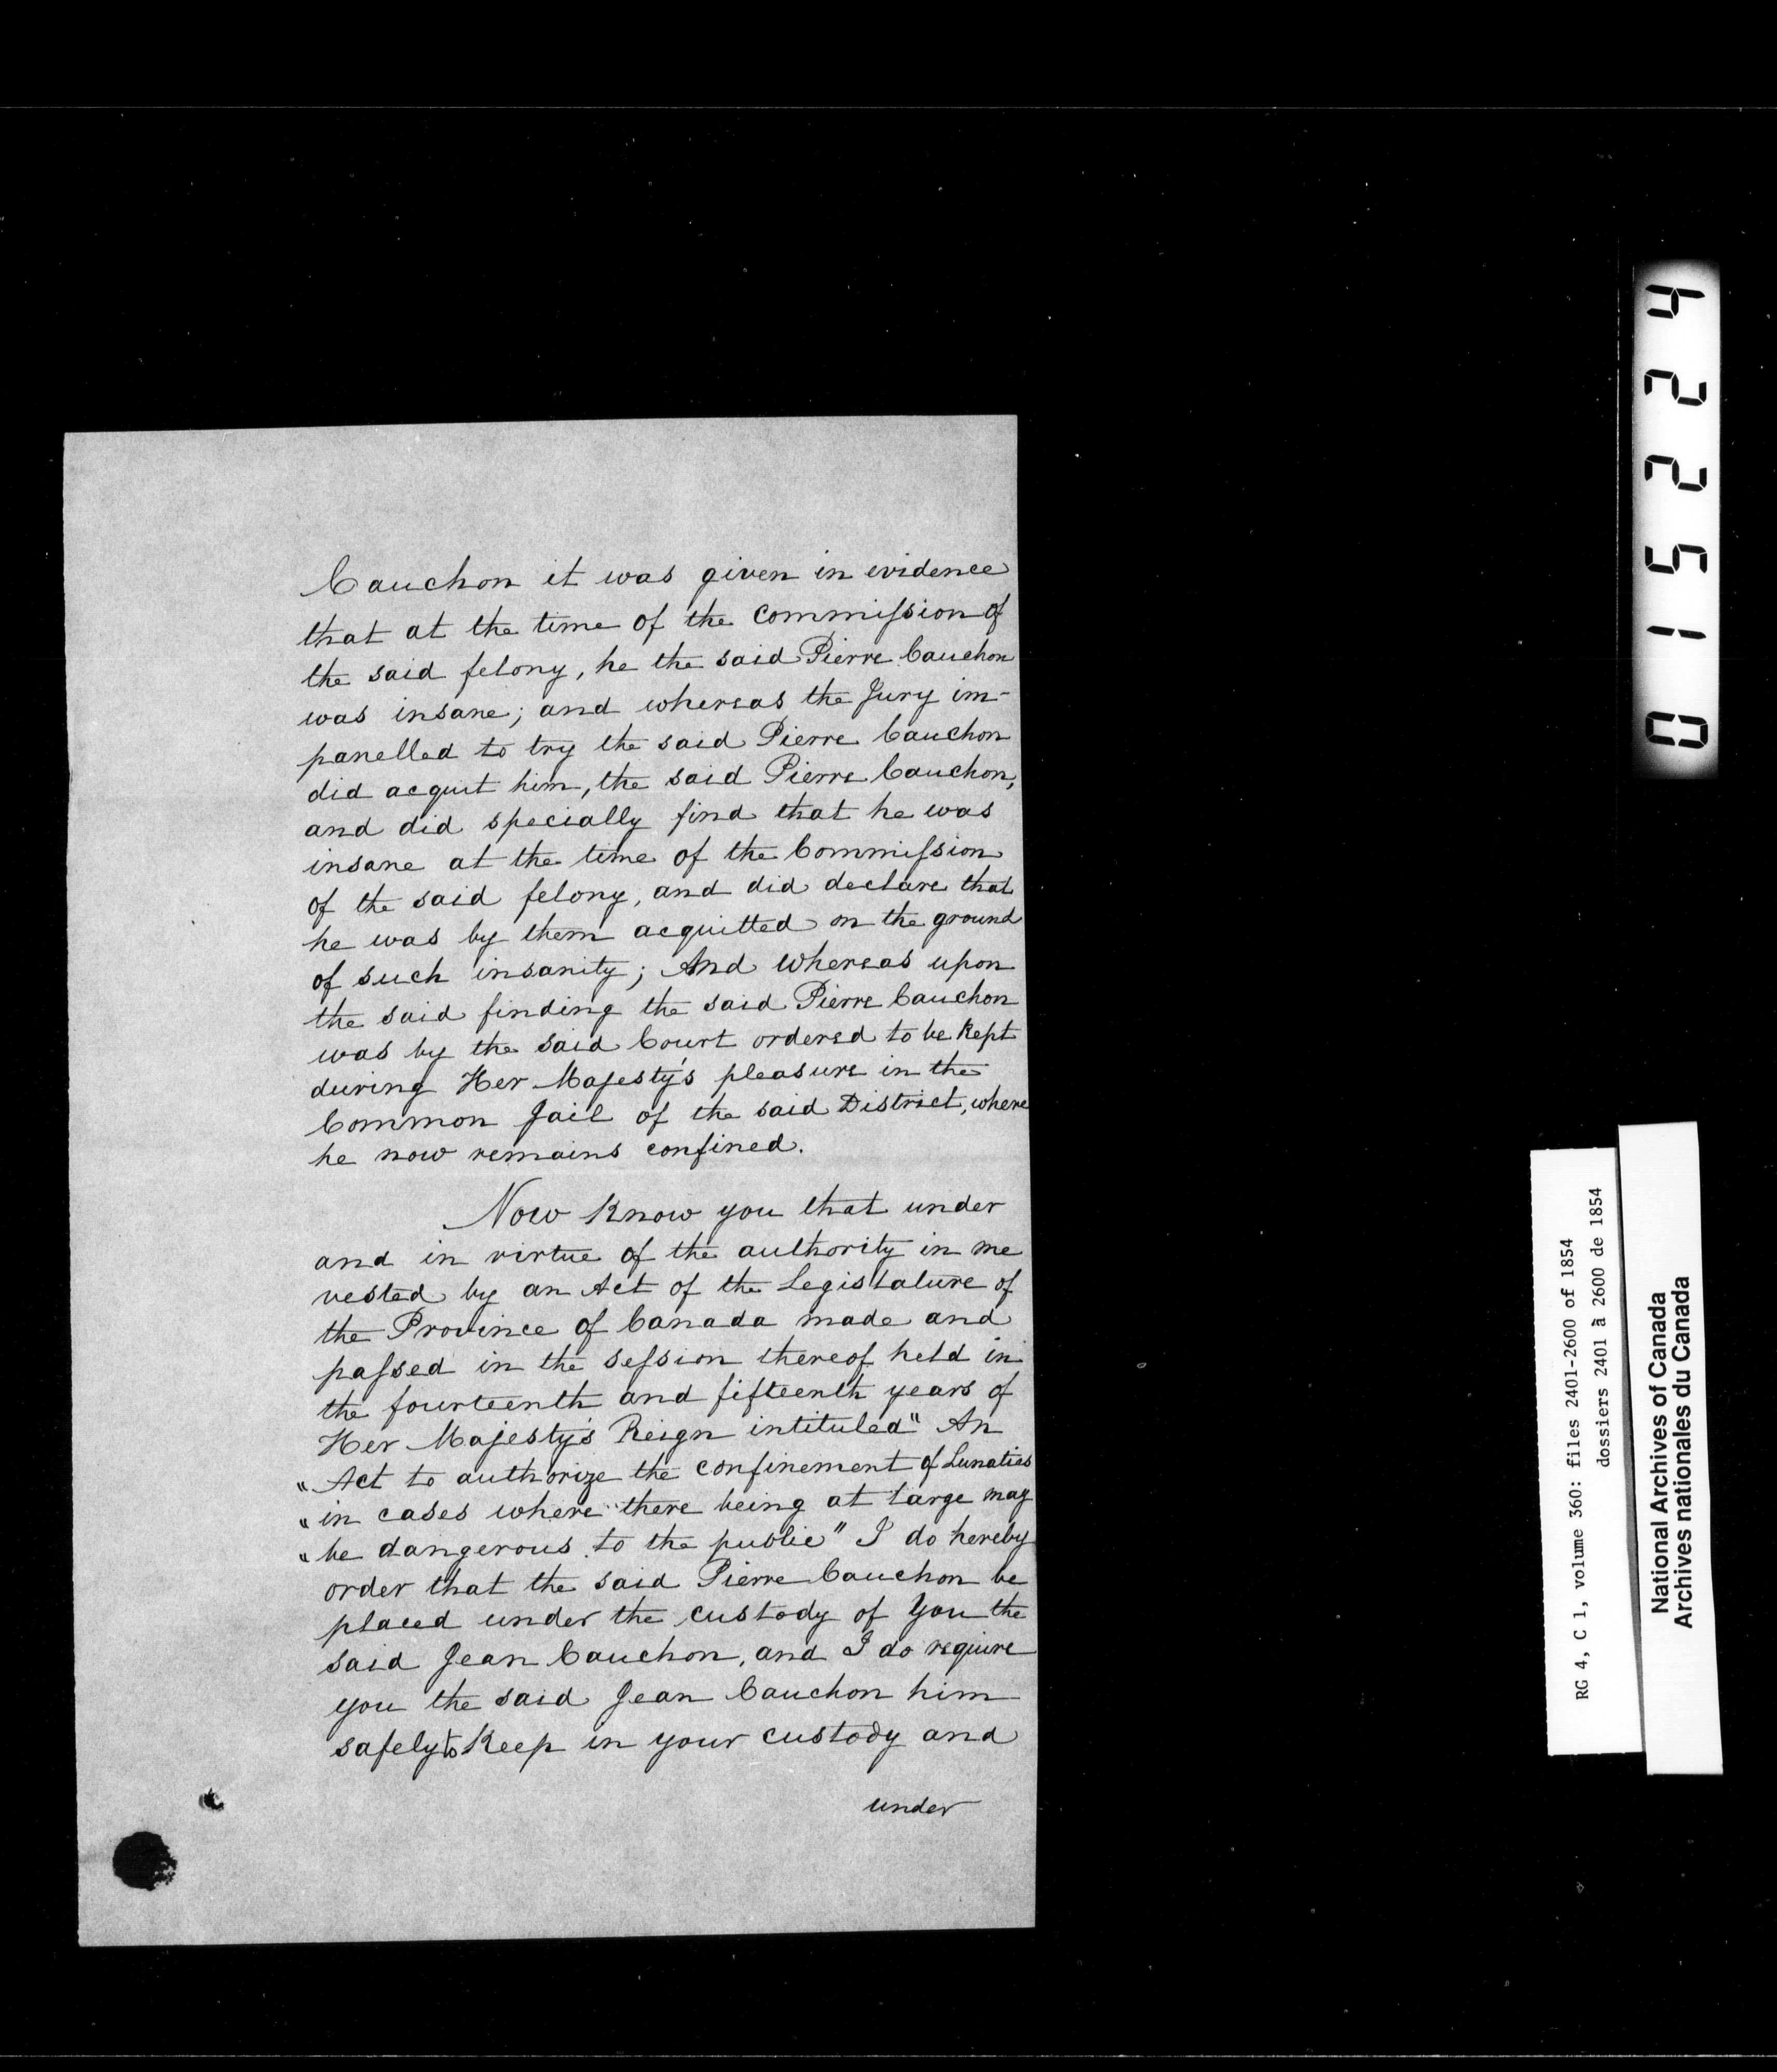 Cauchon it was given in evidence
that at the time of the commission of
the said felony, he the said Pierre Cauchon
was insane; and whereas the Jury im-
panelled to try the said Pierre Cauchon
did acquit him, the said Pierre Cauchon,
and did specially find that he was
insane at the time of the Commission
of the said felony, and did declare that
he was by them acquitted on the ground
of such insanity; And Whereas upon
the said finding the said Pierre Cauchon
was by the said Court ordered to be Kept
during Her Majesty's pleasure in the
Common Jail of the said District, where
he now remains confined.
Now Know you that under
and in virtue of the authority in me
vested by an Act of the Legislature of
the Province of Canada made and
passed in the session thereof held in
the fourteenth and fifteenth years of
Her Majesty's Reign intituled "An
"Act to authorize the confinement of Lunatics
"in cases where there being at large may
"be dangerous to the public" I do hereby
order that the said Pierre Cauchon be
placed under the custody of You the
said Jean Cauchon, and I do require
you the said Jean Cauchon him
safely to Keep in your custody and
under
015224
RG 4, C 1, volume 360: files 2401-2600 of 1854
dossiers 2401 à 2600 de 1854
National Archives of Canada
Archives nationales du Canada